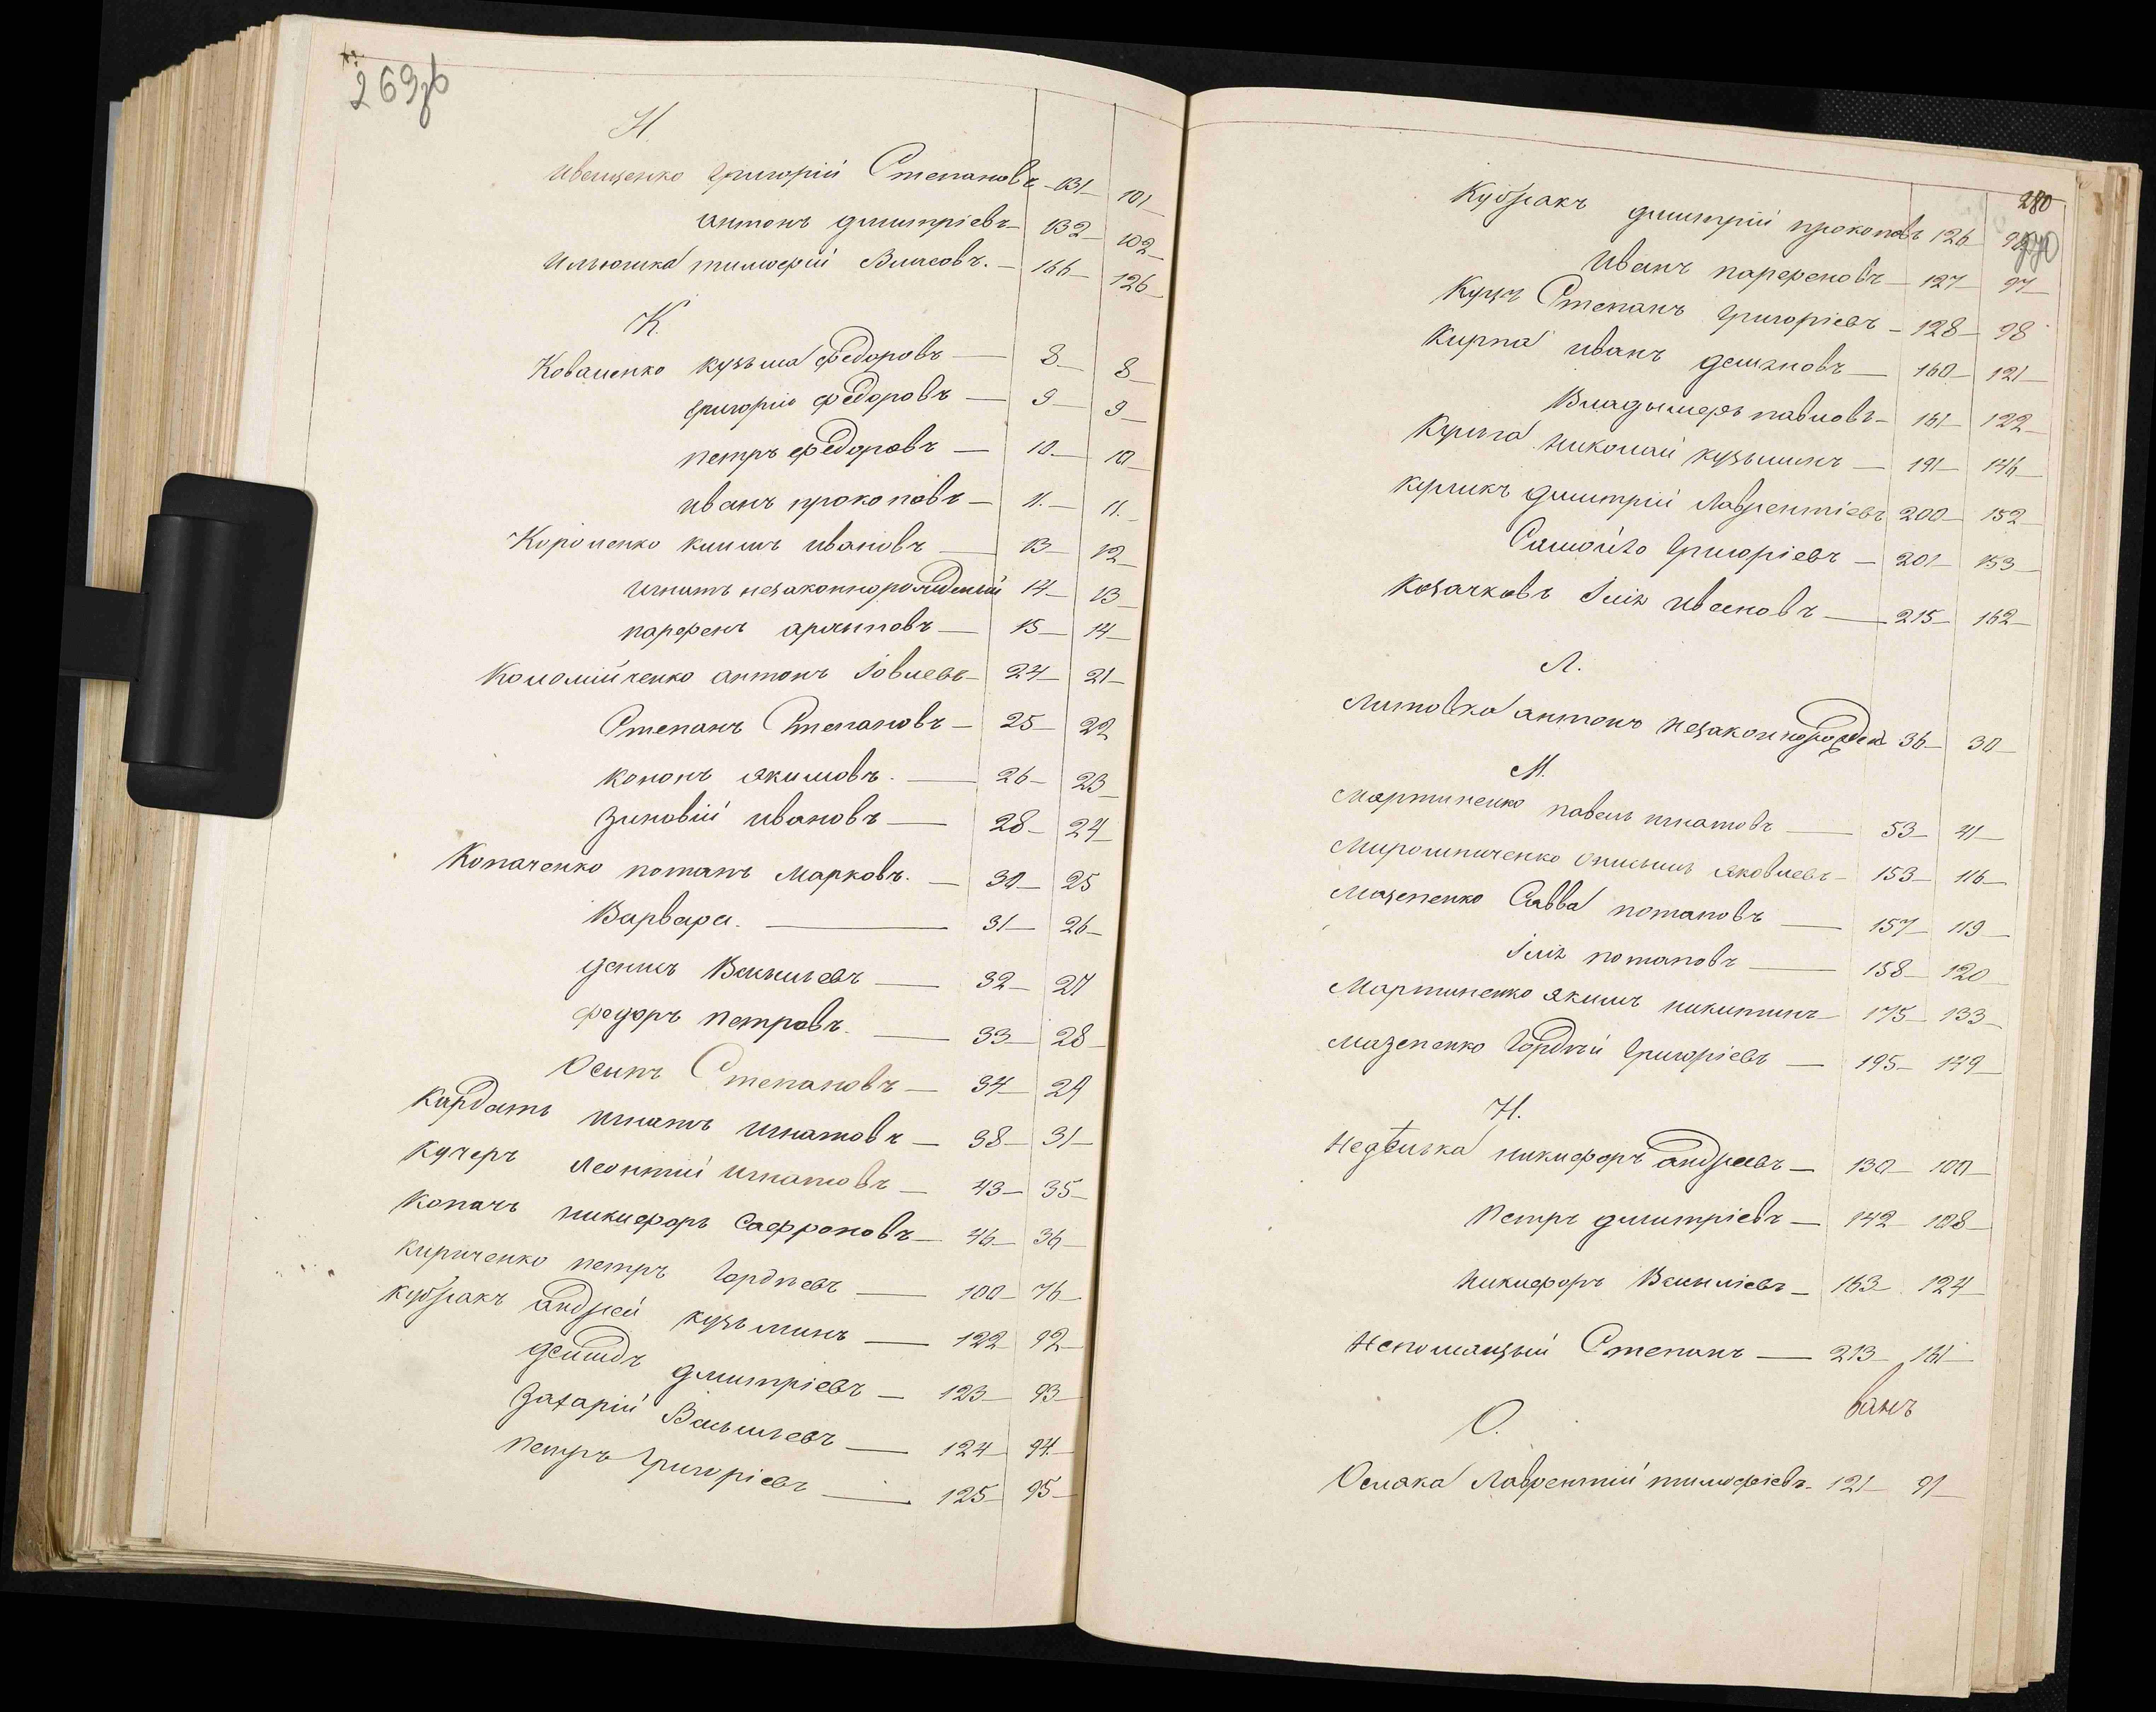 269зв
И.
Иващенко Григорій Степановъ 131 101
Антонъ Дмитріевъ 132 102
Ильюшка Тимофей Власовъ. 166 126
К.
Коваленко Кузьма Федоровъ 8 8
Григорій Федоровъ 9 9
Петръ Федоровъ 10 10
Иванъ Прокоповъ 11. 11.
Короленко Климъ Ивановъ 13 12
Игнатъ незаконнорожденный 14 13
Парфенъ Архиповъ 15 14
Коломійченко Антонъ Іовлевъ 24 21
Степанъ Степановъ 25 22
Кононъ Якимовъ. 26 23
Зиновій Ивановъ 28 24
Копаченко Потапъ Марковъ. 30 25
Варвара. 31 26
Денисъ Васильевъ 32 27
Федоръ Петровъ. 33 28
Осипъ Степановъ 34 29
Кардашъ Игнатъ Игнатовъ 38 31
Кучеръ Леонтій Игнатовъ 43 35
Копачъ Никифоръ Сафроновъ 46 36
Кириченко Петръ Гордѣевъ 100 76
Кубракъ Андрей Кузьминъ 122 92
Демидъ Дмитріевъ 123 93
Захарій Васильевъ 124 94
Петръ Григоріевъ 125 95
280
270
Кубракъ Дмитрій Прокоповъ 126 96
Иванъ Парфеновъ 127 97
Куцъ Степанъ Григоріевъ 128 98
Кирпа Иванъ Демяновъ 160 121
Владымеръ Павловъ 161 122
Николай Кузьминъ 191 146
Куликъ Дмитрій Лаврентіевъ 200 152
Самойло Григоріевъ 201 153
Козачковъ Ілія Ивановъ 215 162
Л.
Литовка Антонъ незаконнорожден 36 30
М.
Мартиненко Павелъ Игнатовъ 53 41
Мирошниченко Яковлевъ 153 116
Мазепенко Савва Потаповъ 157 119
Ілія Потаповъ 158 120
Мартиненко Якимъ Никитинъ 175 133
Мазепенко Гордѣй Григоріевъ 195 149
Н.
Недвѣцка Никифоръ Андреевъ 130 100
Петръ Дмитріевъ 142 108
Никифоръ Василіевъ 163 124
Непомящый Степанъ 213 161
ванъ
О.
Ослака Лаврентій Тимофіевъ. 121 91